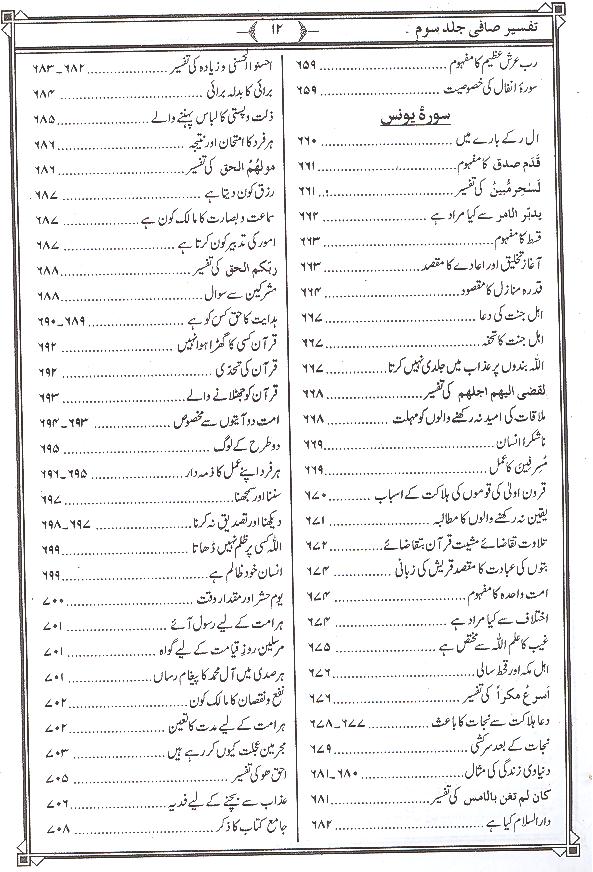 تفسیر صافی جلد سوم
۱۲
رب عرش عظیم کا مفہوم ۶۵۹
سورۂ انفال کی خصوصیت ۶۵۹
سورۂ یونس
ال ر کے بارے میں ۶۶۰
قَدَم صدق کا مفہوم ۶۶۱
لَسٰحِر مُّبِینٌ کی تفسیر ۶۶۱
یدبّر الامر سے کیا مراد ہے ۶۶۲
قسط کا مفہوم ۶۶۳
آغاز تخلیق اور اعادے کا مقصد ۶۶۳
قدرہ منازل کا مقصود ۶۶۴
اہل جنت کی دعا ۶۶۷
اہل جنت کا تحفہ ۶۶۷
اللہ بندوں پر عذاب میں جلدی نہیں کرتا ۶۶۷
لقضی الیہم اجلہم کی تفسیر ۶۶۸
ملاقات کی امید نہ رکھنے والوں کو مہلت ۶۶۸
ناشکرا انسان ۶۶۹
مُسرفین کا عمل ۶۶۹
قرون اولیٰ کی قوموں کی ہلاکت کے اسباب ۶۷۰
یقین نہ رکھنے والوں کا مطالبہ ۶۷۱
تلاوت تقاضائے مشیت قرآن بتقاضائے ۶۷۲
بتوں کی عبادت کا مقصد قریش کی زبانی ۶۷۴
امت واحدہ کا مفہوم ۶۷۴
اختلاف سے کیا مراد ہے ۶۷۴
غیب کا علم اللہ سے مختص ہے ۶۷۵
اہل مکہ اور قحط سالی ۶۷۶
اَسرعُ مکراً کی تفسیر ۶۷۶
دعا ہلاکت سے نجات کا باعث ۶۷۷۔۶۷۸
نجات کے بعد سرکشی ۶۷۹
دنیاوی زندگی کی مثال ۶۸۰۔۶۸۱
کان لم تغن بالامس کی تفسیر ۶۸۱
دار السلام کیا ہے ۶۸۲
احسنو الحسنٰی و زیادہ کی تفسیر ۶۸۲۔۶۸۳
برائی کا بدلہ برائی ۶۸۴
ذلت و پستی کا لباس پہننے والے ۶۸۵
ہر فرد کا امتحان اور نتیجہ ۶۸۶
مولٰهُمُ الحق کی تفسیر ۶۸۶
رزق کون دیتا ہے ۶۸۷
سماعت و بصارت کا مالک کون ہے ۶۸۷
امور کی تدبیر کون کرتا ہے ۶۸۷
ربکم الحق کی تفسیر ۶۸۸
مشرکین سے سوال ۶۸۸
ہدایت کا حق کس کو ہے ۶۸۹۔۶۹۰
قرآن کسی کا گھڑا ہوا نہیں ۶۹۲
قرآن کی تحدّی ۶۹۲
قرآن کو جھٹلانے والے ۶۹۳
امت دو آیتوں سے مخصوص ۶۹۳۔۶۹۴
دو طرح کے لوگ ۶۹۵
ہر فرد اپنے عمل کا ذمہ دار ۶۹۵۔۶۹۶
سننا اور سمجھنا ۶۹۷
دیکھنا اور تصدیق نہ کرنا ۶۹۷۔۶۹۸
اللہ کسی پر ظلم نہیں ڈھاتا ۶۹۹
انسان خود ظالم ہے ۶۹۹
یوم حشر اور مقدار وقت ۷۰۰
ہر امت کے لیے رسول آئے ۷۰۱
مرسلین روزِ قیامت کے لیے گواہ ۷۰۱
ہر صدی میں آل محمدؐ کا پیغام رساں ۷۰۱
نفع و نقصان کا مالک کون ۷۰۲
ہر امت کے لیے مدت کا تعین ۷۰۲
مجرمین عجلت کیوں کر رہے ہیں ۷۰۳
احق ھو کی تفسیر ۷۰۵
عذاب سے بچنے کے لیے فدیہ ۷۰۶
جامع کتاب کا ذکر ۷۰۸